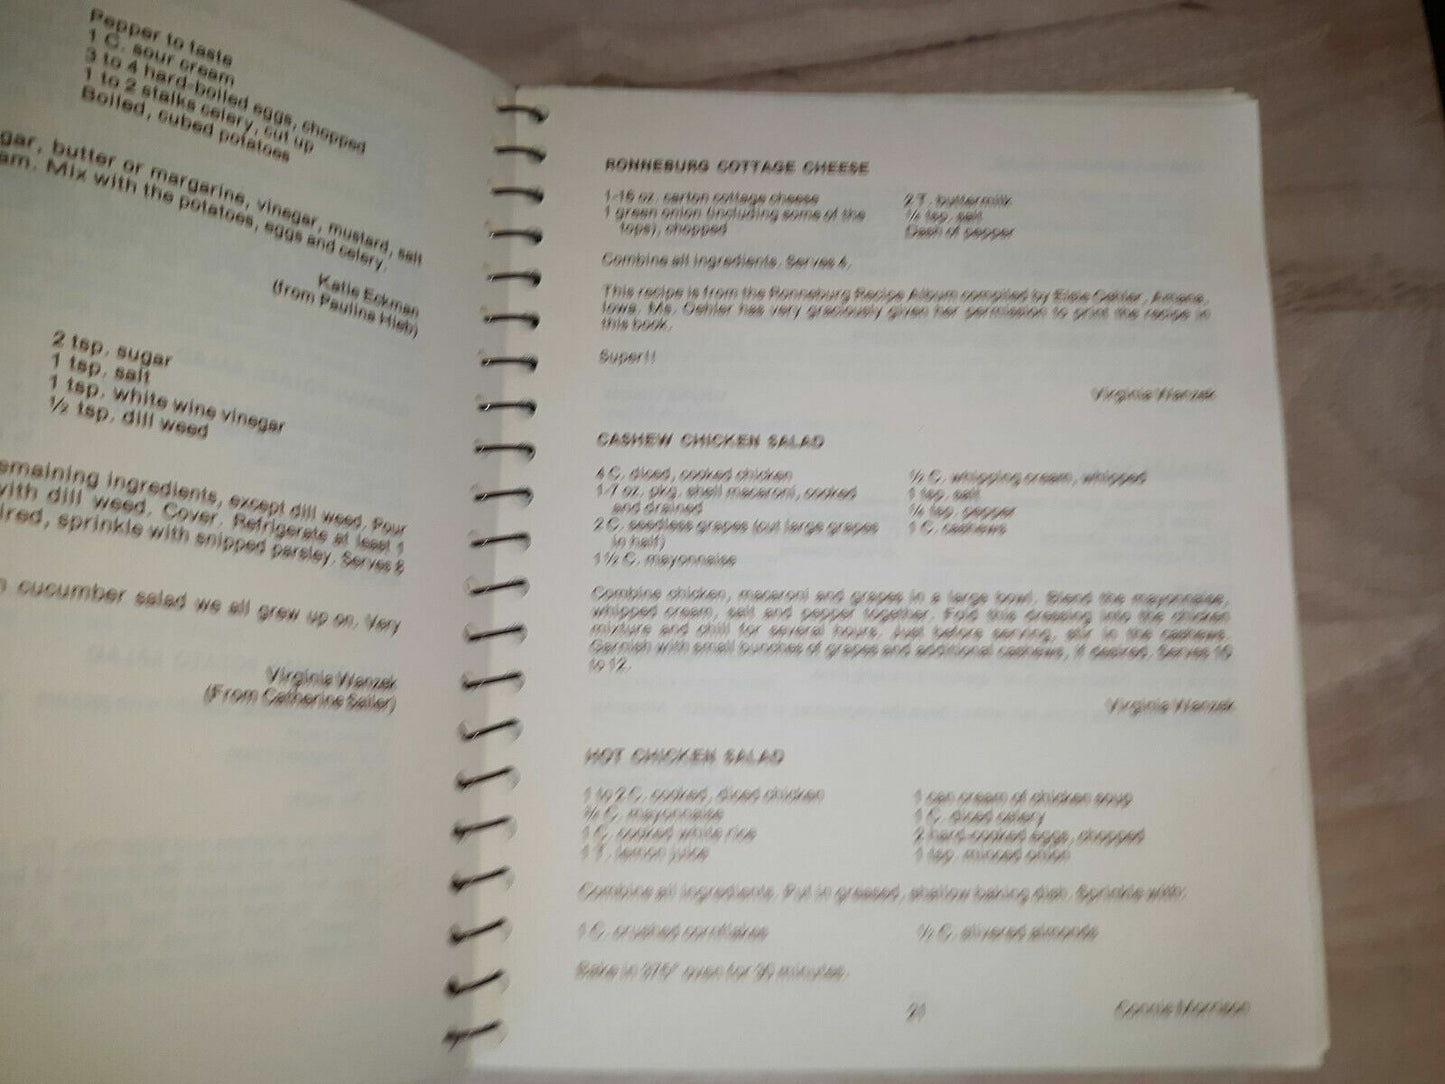 Pepper to taste
1 C. sour cream
3 to 4 hard-boiled eggs, chopped
1 to 2 stalks celery, cut up
Boiled, cubed potatoes
gar, butter or margarine, vinegar, mustard, salt
am. Mix with the potatoes, eggs and celery.
Katie Eckman
(from Paulina Hieb)
2 tsp. sugar
1 tsp. salt
1 tsp. white wine vinegar
½ tsp. dill weed
emaining ingredients, except dill weed. Pour
with dill weed. Cover. Refrigerate at least 1
ired, sprinkle with snipped parsley. Serves 8
cucumber salad we all grew up on. Very
Virginia Wanzek
(From Catherine Seiler)
RONNEBURG COTTAGE CHEESE
1-16 oz. carton cottage cheese
1 green onion (including some of the
tops), chopped
2 T. buttermilk
tsp. salt
Dash of pepper
Combine all ingredients. Serves 4.
This recipe is from the Ronneburg Recipe Album compiled by Elsie Oehler, Amana,
Iowa. Ms. Oehler has very graciously given her permission to print the recipe in
this book.
Super!!
Virginia Wanzek
CASHEW CHICKEN SALAD
4 C. diced, cooked chicken
1-7 oz. pkg. shell macaroni, cooked
and drained
2 C. seedless grapes (cut large grapes
in half)
1½ C. mayonnaise
½ C. whipping cream, whipped
1 tsp. salt
tsp. pepper
1 C. cashews
Combine chicken, macaroni and grapes in a large bowl. Blend the mayonnaise,
whipped cream, salt and pepper together. Fold this dressing into the chicken
mixture and chill for several hours. Just before serving, stir in the cashews.
Garnish with small bunches of grapes and additional cashews, if desired. Serves 10
to 12.
Virginia Wanzek
HOT CHICKEN SALAD
1 to 2 C. cooked, diced chicken
C. mayonnaise
1 C. cooked white rice
1 T. lemon juice
1 can cream of chicken soup
1 C. diced celery
2 hard-cooked eggs, chopped
1 tsp. minced onion
Combine all ingredients. Put in greased, shallow baking dish. Sprinkle with:
1 C. crushed cornflakes
½ C. slivered almonds
Bake in 375° oven for 30 minutes.
21
Connie Morrison